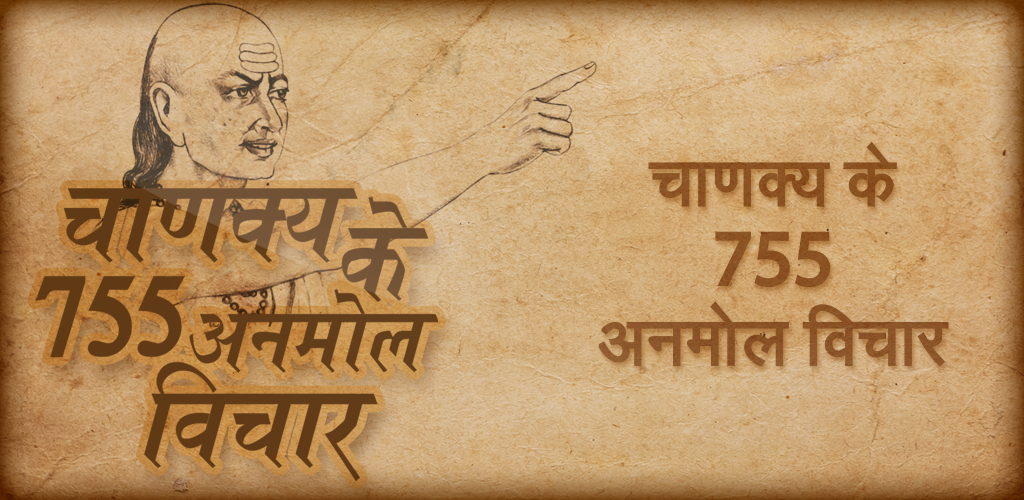 चाणक्य के
755 अनमोल
विचार
चाणक्य के
755
अनमोल विचार